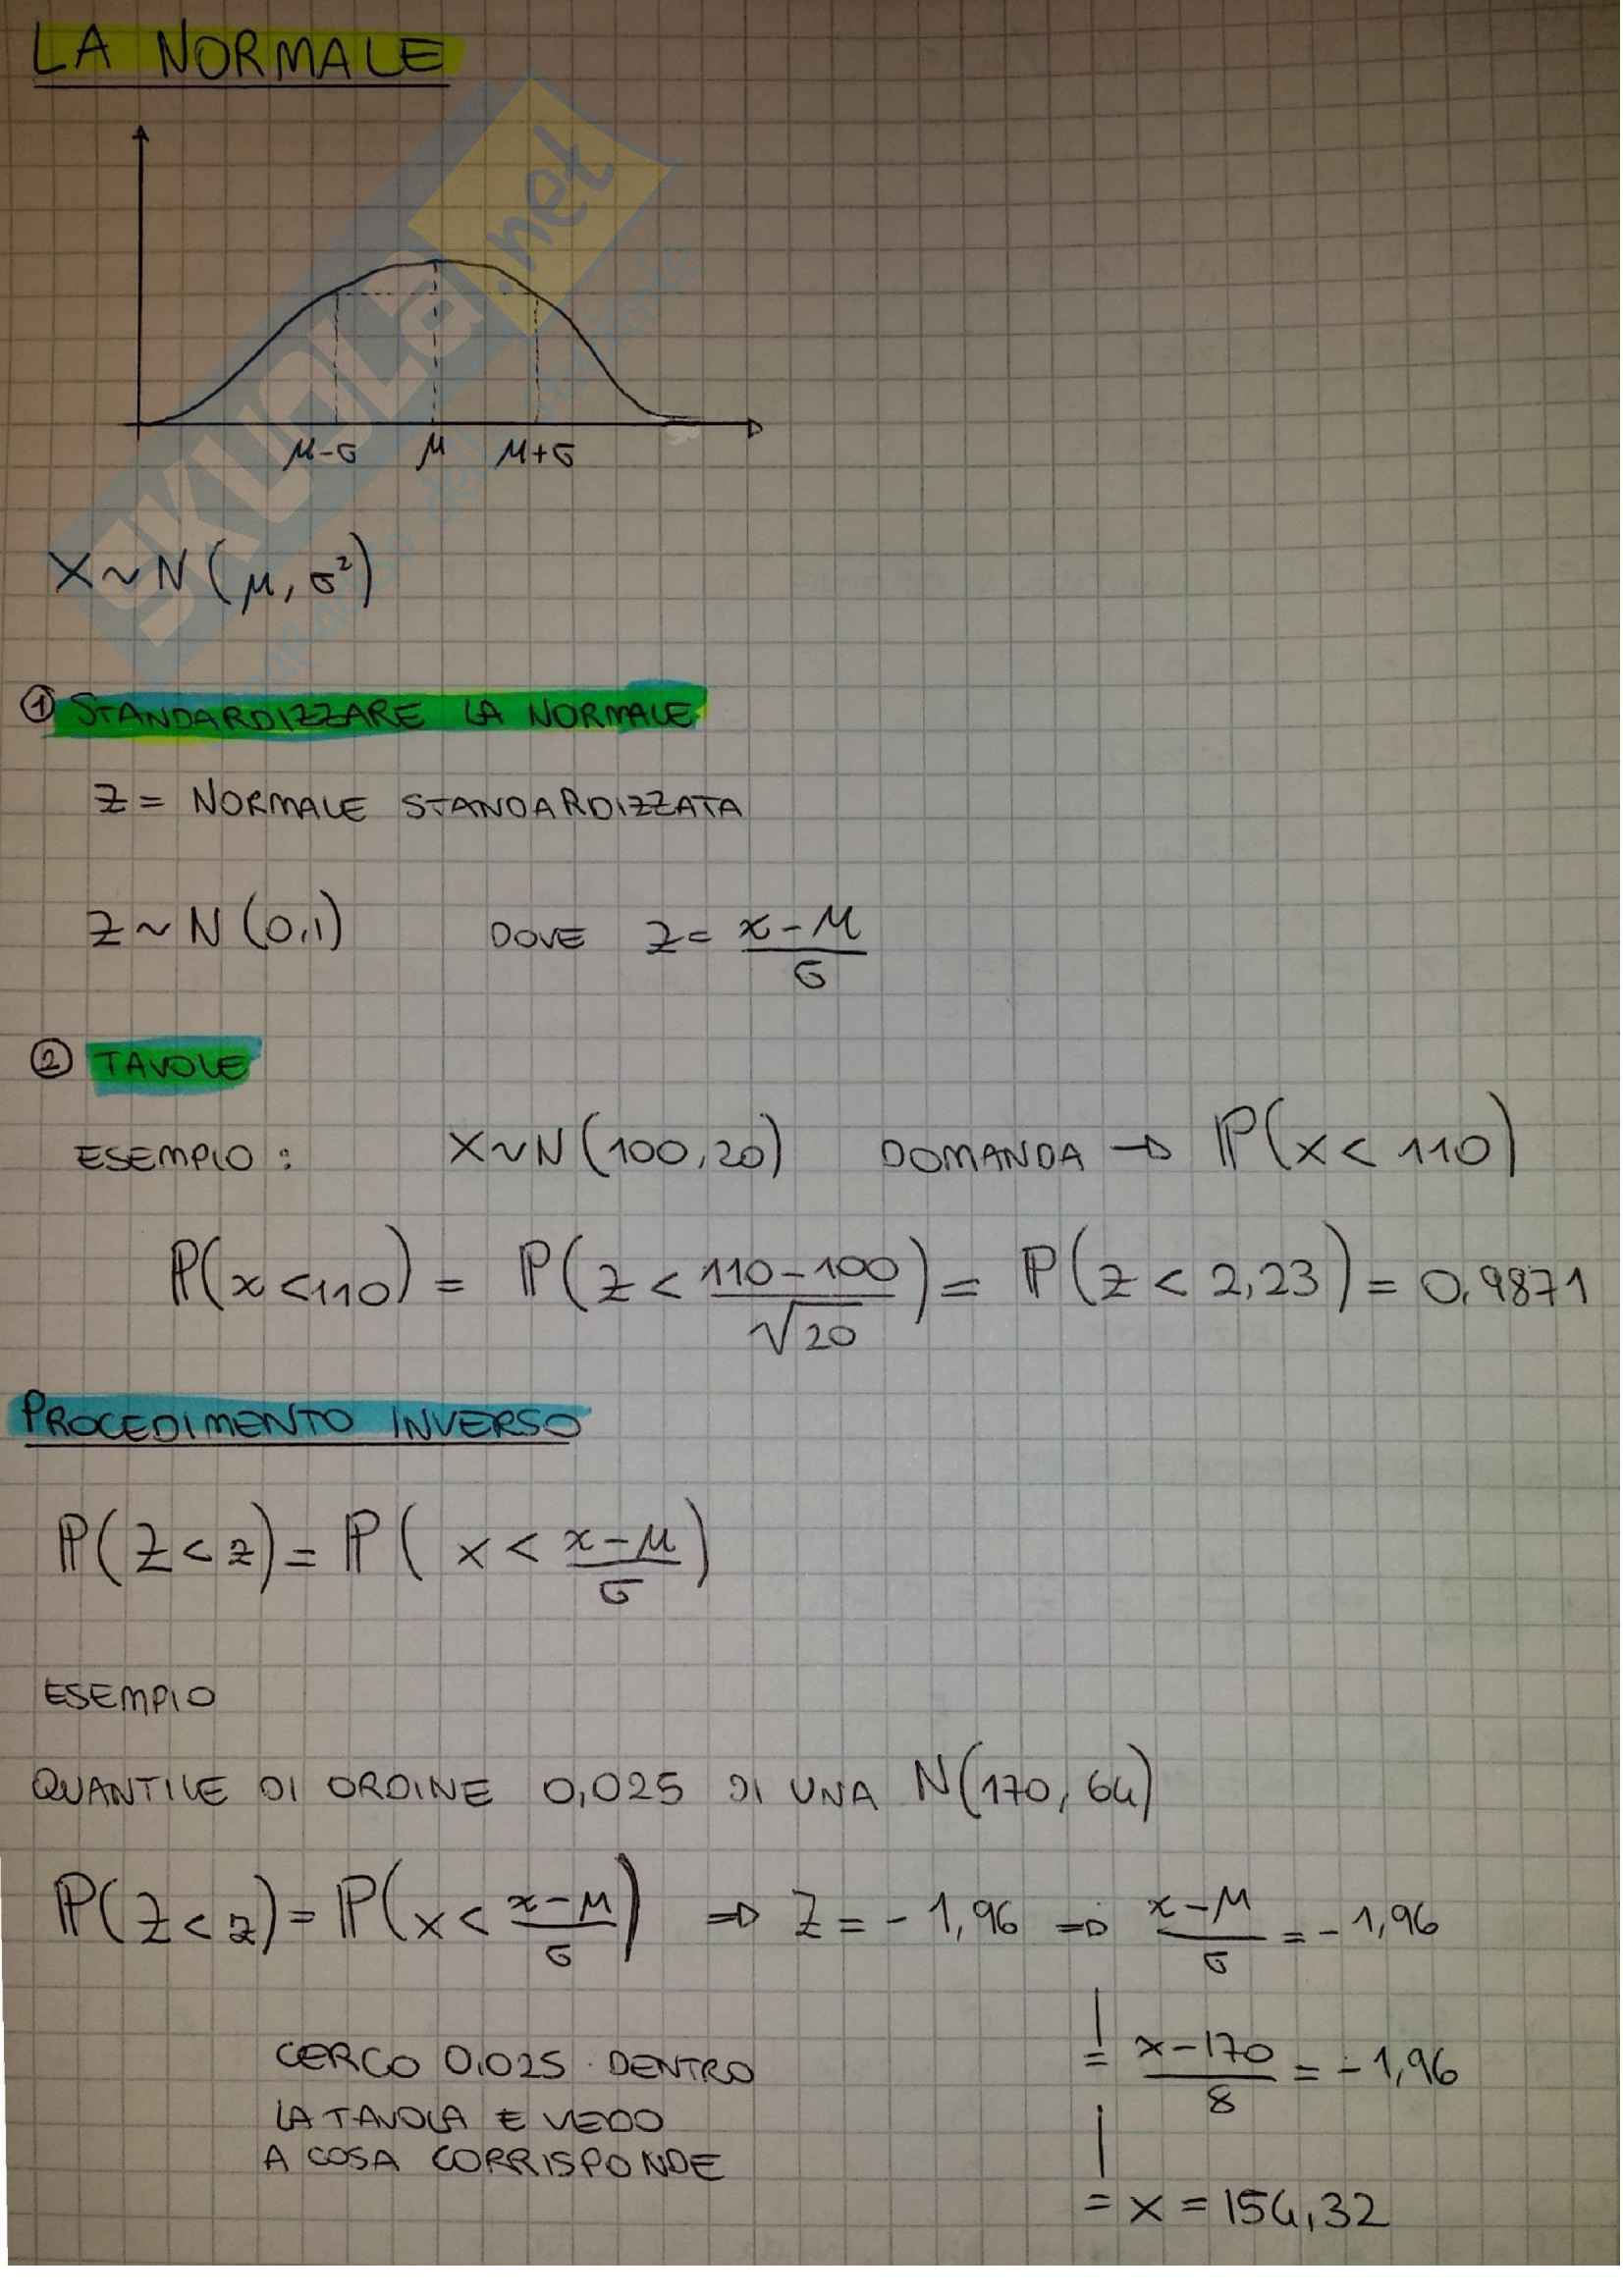 LA NORMALE
SKUOLA.net
μ-σ μ μ+σ
X~N(μ, σ²)
① STANDARDIZZARE LA NORMALE
Z = NORMALE STANDARDIZZATA
Z~N(0,1) DOVE Z = (x-μ)/σ
② TAVOLE
ESEMPIO: X~N(100,20) DOMANDA → ℙ(X<110)
ℙ(x<110) = ℙ(Z < (110-100)/√20) = ℙ(Z < 2,23) = 0,9871
PROCEDIMENTO INVERSO
ℙ(Z<z) = ℙ(X < (x-μ)/σ)
ESEMPIO
QUANTILE DI ORDINE 0,025 DI UNA N(170, 64)
ℙ(Z<z) = ℙ(X < (x-μ)/σ) ⇒ Z = -1,96 ⇒ (x-μ)/σ = -1,96
= (x-170)/8 = -1,96
CERCO 0,025 DENTRO
LA TAVOLA E VEDO
A COSA CORRISPONDE
= X = 154,32